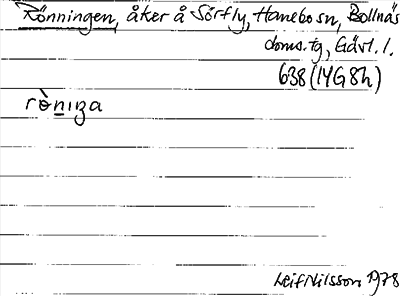 Rönningen, åker å Sörfly, Hanebo sn, Bollnäs
doms.tg, Gävl. l.
638 (14G8h)
rèniga
Leif Nilsson 1978